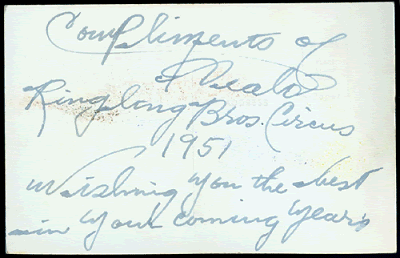 Compliments of
Ringlong Bros. Circus
1951
Wishing you the best
in your coming years